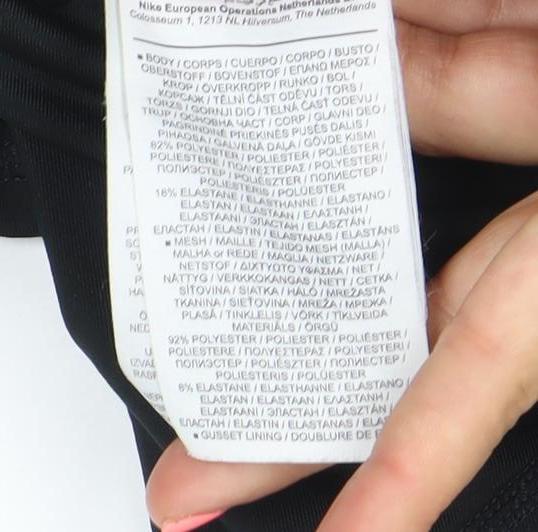 Nike European Operations Netherlands
Colosseum 1, 1213 NL Hilversum, The Netherlands
▪ BODY / CORPS / CUERPO / CORPO / BUSTO /
OBERSTOFF / BOVENSTOF / ΕΠΑΝΩ ΜΕΡΟΣ /
KROP / ÖVERKROPP / RUNKO / BOL /
КОРСАЖ / TĚLNÍ ČÁST ODĚVU / TORS /
TÖRZS / GORNJI DIO / TELNÁ ČASŤ ODEVU /
TRUP / ОСНОВНА ЧАСТ / CORP / GLAVNI DEO /
PAGRINDINĖ PRIEKINĖS PUSĖS DALIS /
PIHAOSA / GALVENĀ DAĻA / GÖVDE KISMI
82% POLYESTER / POLIESTER / POLIÉSTER /
POLIESTERE / ΠΟΛΥΕΣΤΕΡΑΣ / POLYESTERI /
ПОЛИЭСТЕР / POLIÉSZTER / ПОЛИЕСТЕР /
POLIESTERIS / POLÜESTER
18% ELASTANE / ELASTHANNE / ELASTANO /
ELASTAN / ELASTAAN / ΕΛΑΣΤΑΝΗ /
ELASTAANI / ЭЛАСТАН / ELASZTÁN /
ЕЛАСТАН / ELASTIN / ELASTANAS / ELASTĀNS
▪ MESH / MAILLE / TEJIDO MESH (MALLA) /
MALHA or REDE / MAGLIA / NETZWARE /
NETSTOF / ΔΙΧΤΥΩΤΟ ΥΦΑΣΜΑ / NET /
NÄTTYG / VERKKOKANGAS / NETT / СЕТКА /
SÍŤOVINA / SIATKA / HÁLÓ / MREŽASTA
TKANINA / SIEŤOVINA / МРЕЖА / МРЕЖА /
PLASĂ / TINKLELIS / VÕRK / TĪKLVEIDA
MATERIĀLS / ÖRGÜ
92% POLYESTER / POLIESTER / POLIÉSTER /
POLIESTERE / ΠΟΛΥΕΣΤΕΡΑΣ / POLYESTERI /
ПОЛИЭСТЕР / POLIÉSZTER / ПОЛИЕСТЕР /
POLIESTERIS / POLÜESTER
8% ELASTANE / ELASTHANNE / ELASTANO /
ELASTAN / ELASTAAN / ΕΛΑΣΤΑΝΗ /
ELASTAANI / ЭЛАСТАН / ELASZTÁN /
ЕЛАСТАН / ELASTIN / ELASTANAS /
▪ GUSSET LINING / DOUBLURE DE